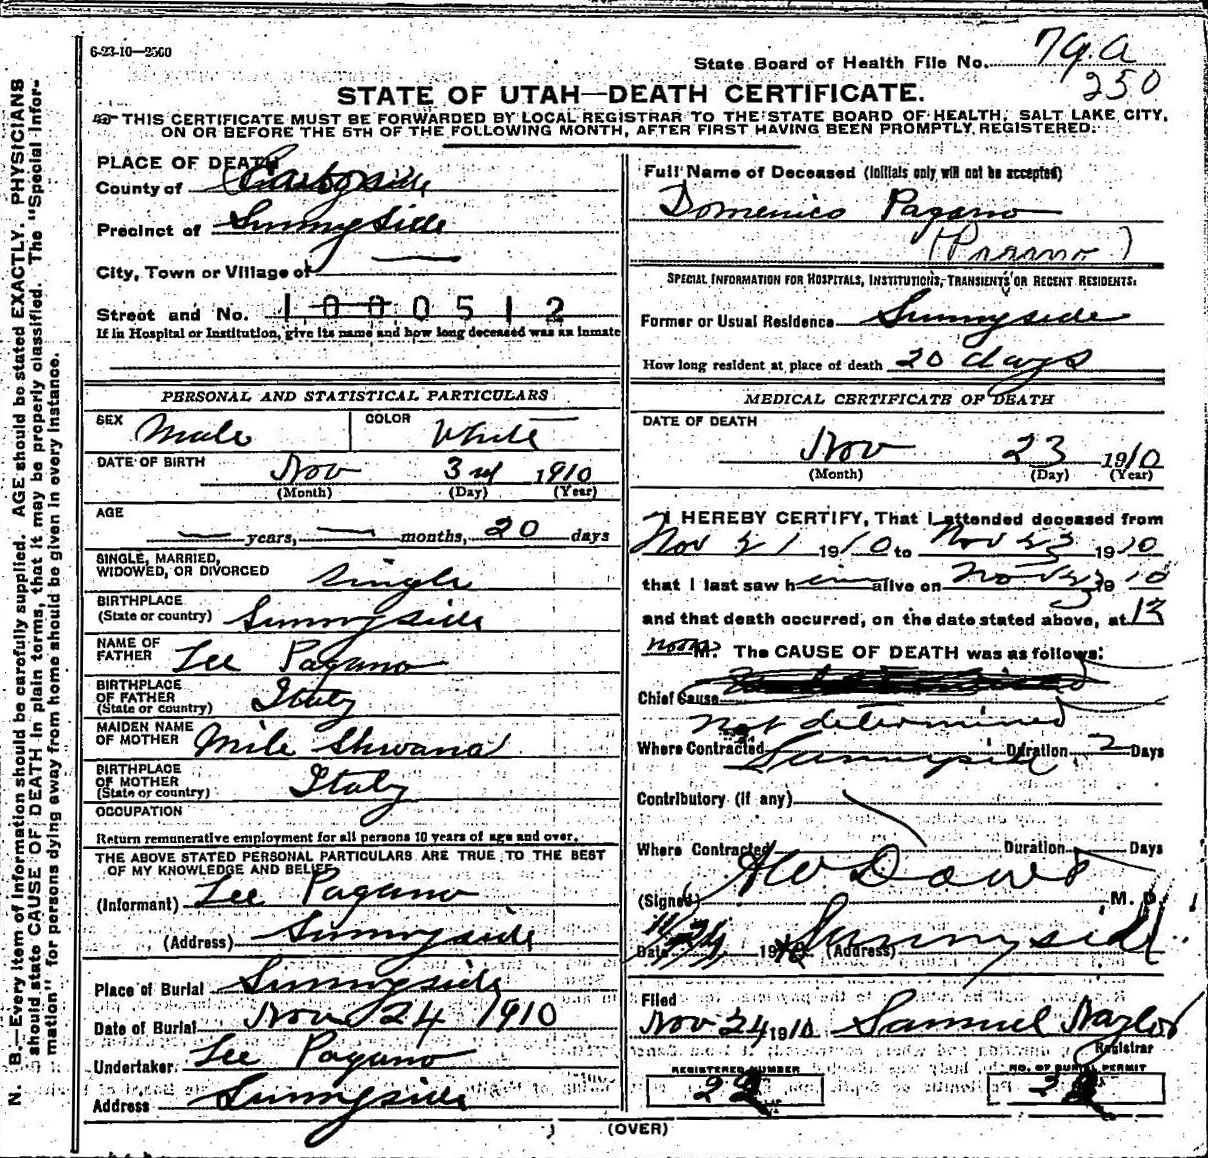 6-23-10—2500
State Board of Health File No. 79.a
250
STATE OF UTAH—DEATH CERTIFICATE.
THIS CERTIFICATE MUST BE FORWARDED BY LOCAL REGISTRAR TO THE STATE BOARD OF HEALTH, SALT LAKE CITY,
ON OR BEFORE THE 5TH OF THE FOLLOWING MONTH, AFTER FIRST HAVING BEEN PROMPTLY REGISTERED.
N. B.—Every item of information should be carefully supplied. AGE should be stated EXACTLY. PHYSICIANS
should state CAUSE OF DEATH in plain terms, that it may be properly classified. The "Special Infor-
mation" for persons dying away from home should be given in every instance.
PLACE OF DEATH
County of
Precinct of Sunnyside
City, Town or Village of —
Street and No. 1000512
If in Hospital or Institution, give its name and how long deceased was an inmate
PERSONAL AND STATISTICAL PARTICULARS
SEX Male COLOR White
DATE OF BIRTH Nov 3rd 1910
(Month) (Day) (Year)
AGE
— years, — months, 20 days
SINGLE, MARRIED,
WIDOWED, OR DIVORCED single
BIRTHPLACE
(State or country) Sunnyside
NAME OF
FATHER Lee Pagano
BIRTHPLACE
OF FATHER
(State or country) Italy
MAIDEN NAME
OF MOTHER Mile Shwana
BIRTHPLACE
OF MOTHER
(State or country) Italy
OCCUPATION
Return remunerative employment for all persons 10 years of age and over.
THE ABOVE STATED PERSONAL PARTICULARS ARE TRUE TO THE BEST
OF MY KNOWLEDGE AND BELIEF
(Informant) Lee Pagano
(Address) Sunnyside
Place of Burial Sunnyside
Date of Burial Nov 24 1910
Undertaker Lee Pagano
Address Sunnyside
Full Name of Deceased (Initials only will not be accepted)
Domenico Pagano
(Pagano)
SPECIAL INFORMATION FOR HOSPITALS, INSTITUTIONS, TRANSIENTS OR RECENT RESIDENTS.
Former or Usual Residence Sunnyside
How long resident at place of death 20 days
MEDICAL CERTIFICATE OF DEATH
DATE OF DEATH
Nov 23 1910
(Month) (Day) (Year)
I HEREBY CERTIFY, That I attended deceased from
Nov 21 1910 to Nov 23 1910
that I last saw him alive on Nov 23 1910
and that death occurred, on the date stated above, at 12
noon M. The CAUSE OF DEATH was as follows:
Chief Cause
Not determined
Where Contracted Sunnyside Duration 2 Days
Contributory (if any)
Where Contracted Duration Days
(Signed) A W Dowd M. D.
Date 11/24 1910 (Address) Sunnyside
Filed
Nov 24 1910 Samuel Naylor
Registrar
REGISTERED NUMBER NO. OF BURIAL PERMIT
(OVER)